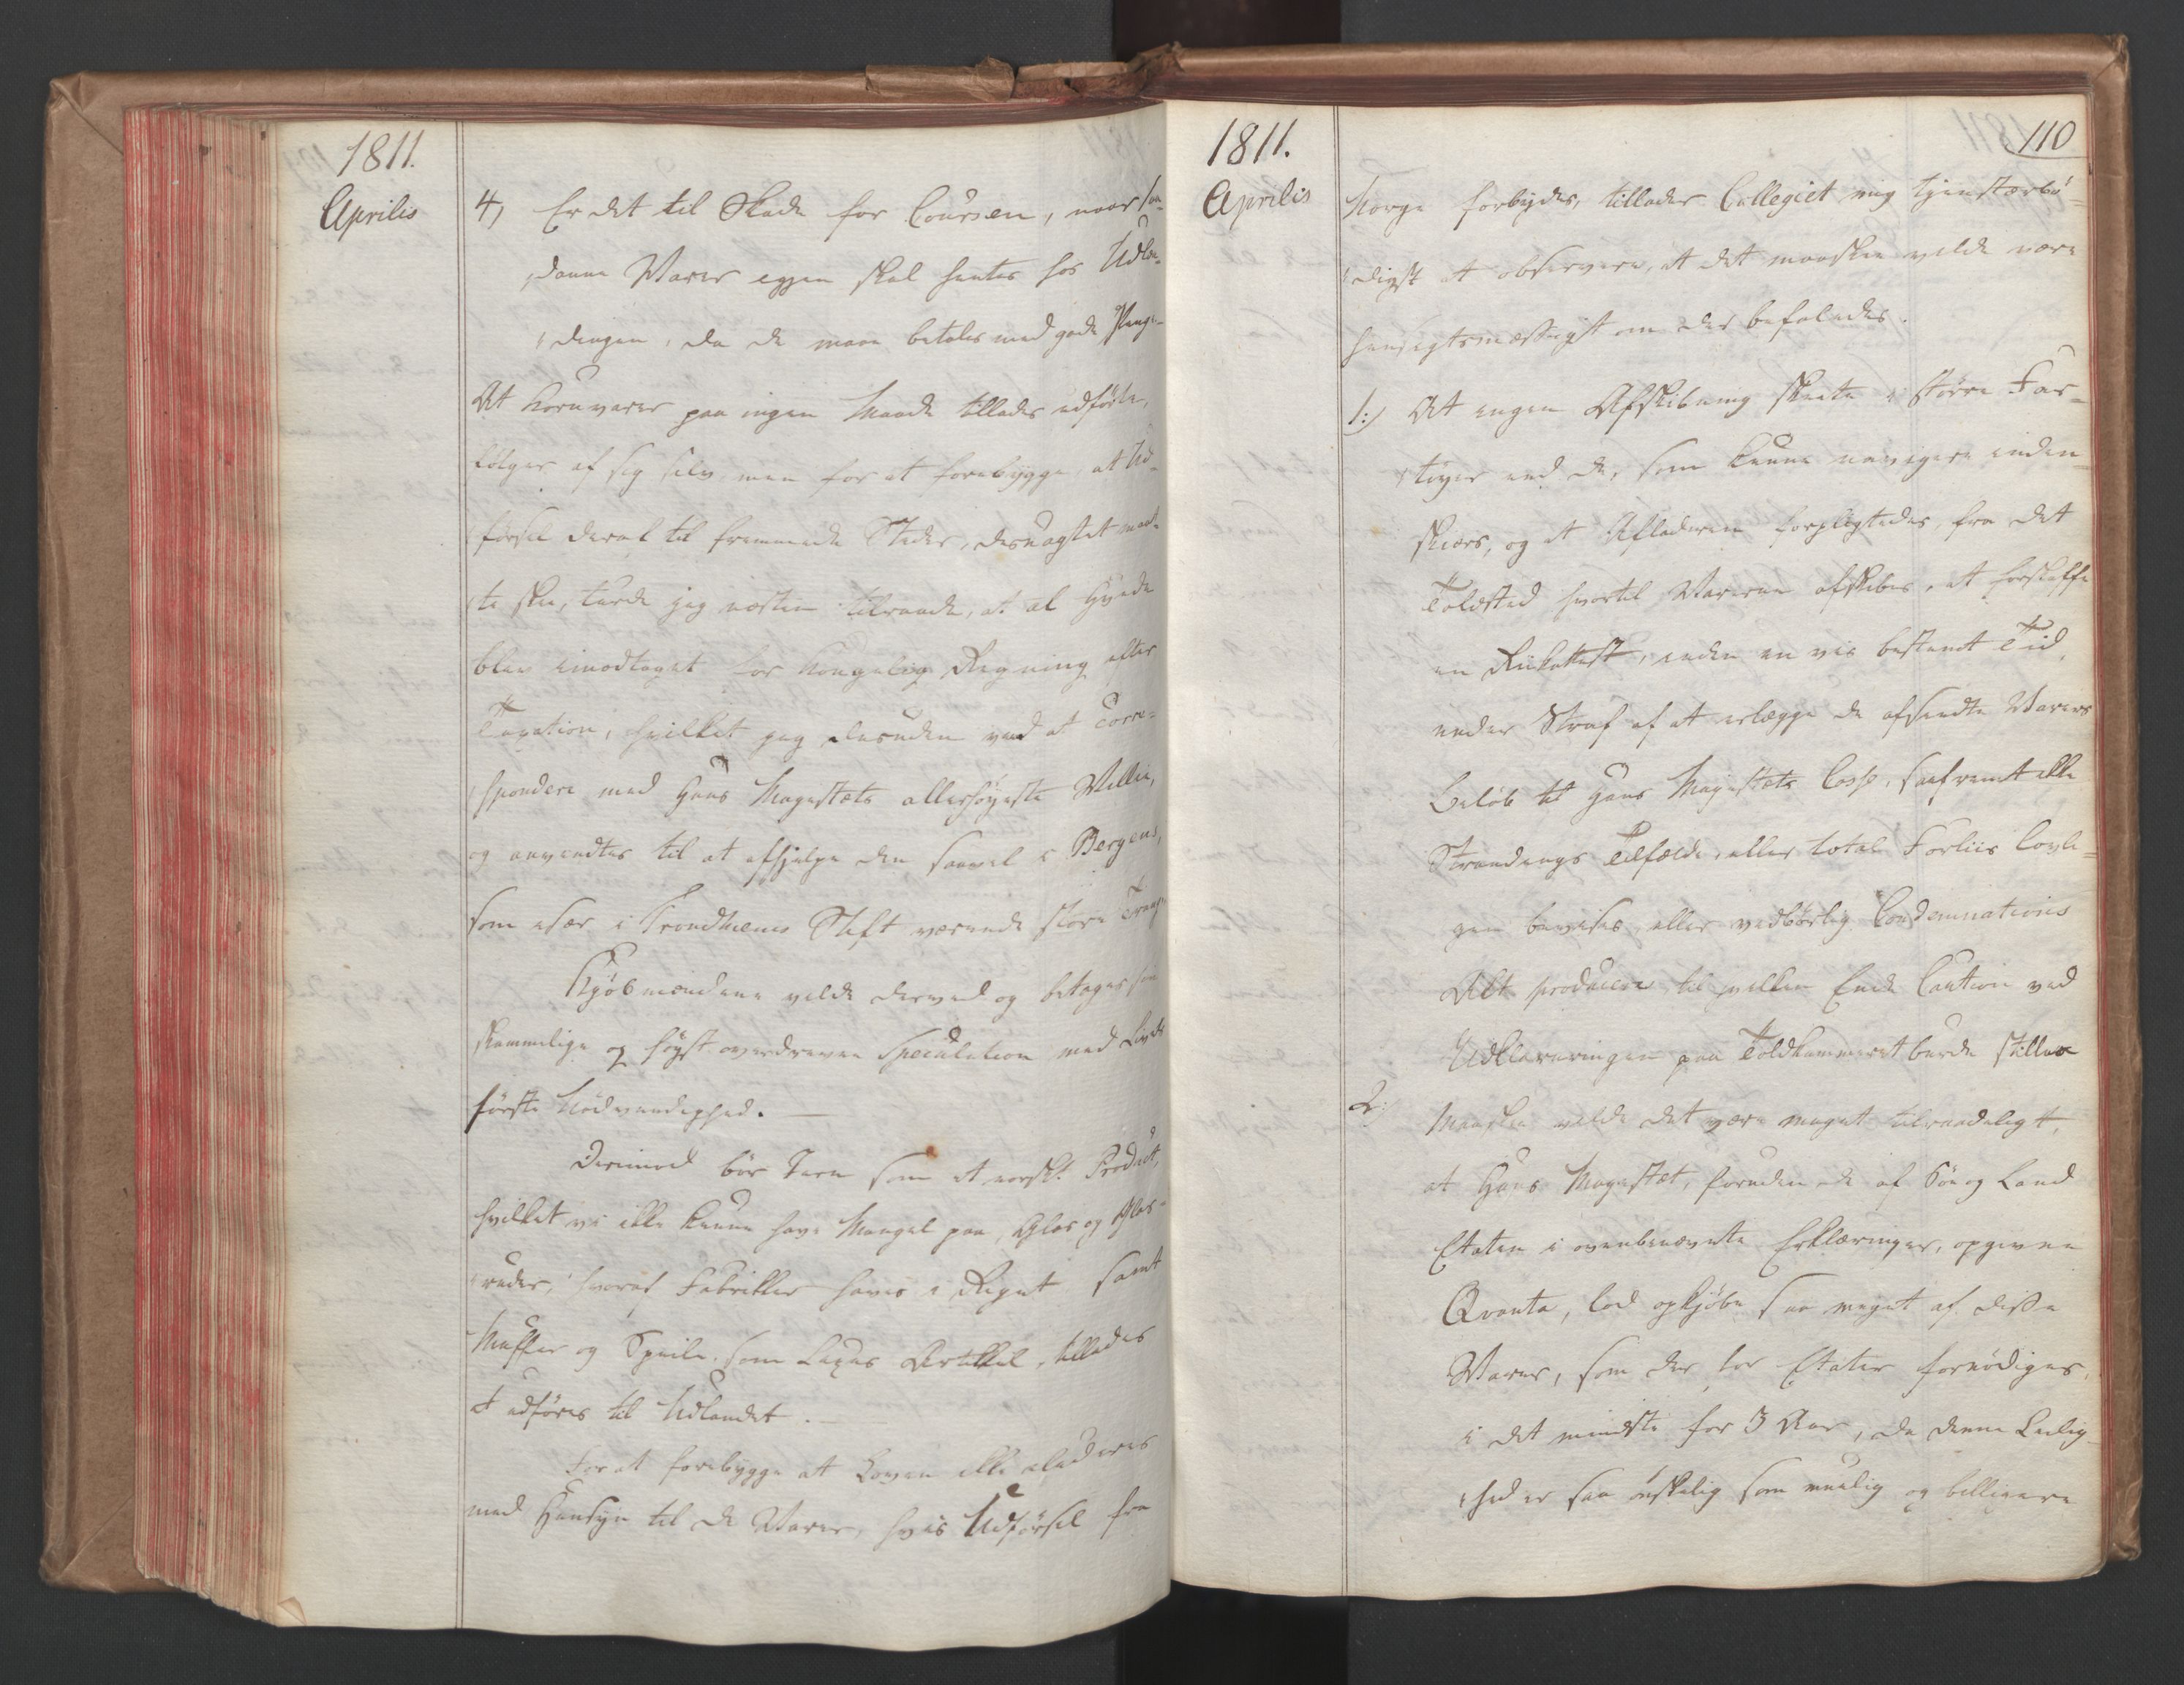 1811.
Aprilis
4, Er det til Skade for Coursen, naar saa-
danne Varer igjen skal hentes hos Udlæn-
dingen, da de maae betales med gode Penge.
At Kornvarer paa ingen Maade tillades udførte,
følger af sig selv men for at forebygge, at Ud-
førsel deraf til fremmede Steder, desuagtet maat-
te skee, turde jeg næsten tilraade, at al Hvede
blev imodtaget for Kongelig Regning efter
Taxation, hvilket jeg desuden veed at corre-
spondere med Hans Majestæts allerhøyeste Villie,
og anvendtes til at afhjelpe den, saavel i Bergens,
som især i Trondhiems Stift værende store Trang.
Kjøbmændene vilde derved og betages sin
skammelige og høyst overdrevne Speculation med Livets
første Nødvendighed. —
Derimod bør Jern som et norskt Product,
hvilket vi ikke kunne have Mangel paa, Glas og Glas-
ruder, hvoraf Fabrikker haves i Riget samt
Muffer og Speile, som Luxus Artikkel, tillades
at udføres til Udlandet. —
For at forebygge at Loven ikke eluderes
med Hensyn til de Varer, hvis Udførsel fra
1811.
110
Aprilis
Norge forbydes, tillader Collegiet mig tjenstærbø-
digst at observere, at det maaskee vilde være
hensigtsmæssigst om der befaledes.
1:) At ingen Afskibning skeete i større Far-
tøyer end de, som kunne navigere inden-
skiærs, og at Afladeren forpligtedes, fra det
Toldsted hvortil Varerne afskibes, at forskaffe
en Riikattest, inden en vis bestemt Tid,
under Straf af at erlægge de afsendte Varers
Beløb til Hans Majestæts Casse, saafremt ikke
Strandings Tilfælde, eller total Forliis lovli-
gen bevises, eller vedbørlig Condemnations
Akt produceres, til hvilken Ende Caution ved
Udklareringen paa Toldkammeret burde stilles
2:) Maaskee vilde det være meget tilraadeligt,
at Hans Majestæt, foruden de af Søe og Land
Etaten i ovenbenævnte Erklæringer, opgivne
Qvanta, lod opkjøbe saa meget af disse
Varer, som der for Etater fornødiges,
i det mindste for 3 Aar, da denne Leilig-
hed er saa ønskelig som muelig og billigere